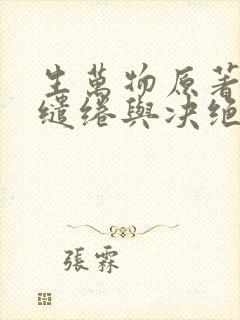 生萬物原著
繾綣與決絕
張霖